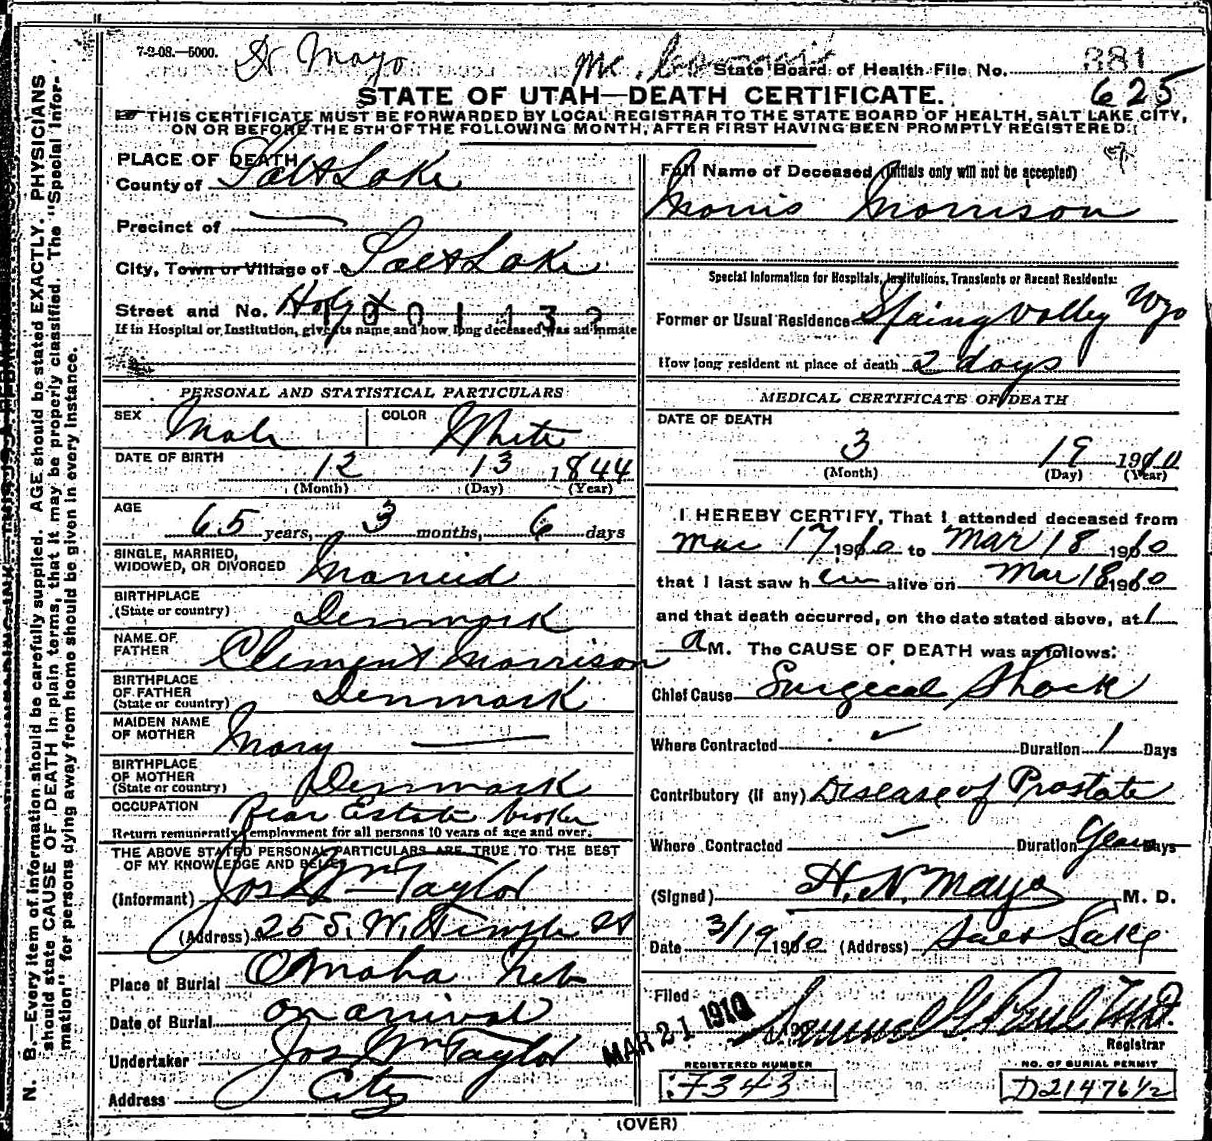 7-2-08.—5000.
Dr Mayo
State Board of Health File No. 381
625
STATE OF UTAH—DEATH CERTIFICATE.
THIS CERTIFICATE MUST BE FORWARDED BY LOCAL REGISTRAR TO THE STATE BOARD OF HEALTH, SALT LAKE CITY,
ON OR BEFORE THE 5TH OF THE FOLLOWING MONTH, AFTER FIRST HAVING BEEN PROMPTLY REGISTERED.
N. B.—Every item of information should be carefully supplied. AGE should be stated EXACTLY. PHYSICIANS
should state CAUSE OF DEATH in plain terms, that it may be properly classified. The "Special Infor-
mation" for persons dying away from home should be given in every instance.
PLACE OF DEATH
County of Salt Lake
Precinct of —
City, Town or Village of Salt Lake
Street and No.
If in Hospital or Institution, give its name and how long deceased was an inmate
PERSONAL AND STATISTICAL PARTICULARS
SEX Male COLOR White
DATE OF BIRTH 12 13 1844
(Month) (Day) (Year)
AGE 65 years, 3 months, 6 days
SINGLE, MARRIED,
WIDOWED, OR DIVORCED Married
BIRTHPLACE
(State or country) Denmark
NAME OF
FATHER Clement Morrison
BIRTHPLACE
OF FATHER
(State or country) Denmark
MAIDEN NAME
OF MOTHER Mary —
BIRTHPLACE
OF MOTHER
(State or country) Denmark
OCCUPATION Real Estate broker
Return remunerative employment for all persons 10 years of age and over.
THE ABOVE STATED PERSONAL PARTICULARS ARE TRUE TO THE BEST
OF MY KNOWLEDGE AND BELIEF
(Informant) Jos Wm Taylor
(Address) 25 S. W. Temple St
Place of Burial Omaha Neb
Date of Burial on arrival
Undertaker Jos Wm Taylor
Address City
Full Name of Deceased (Initials only will not be accepted)
Morris Morrison
Special Information for Hospitals, Institutions, Transients or Recent Residents:
Former or Usual Residence Spring Valley Wyo
How long resident at place of death 2 days
MEDICAL CERTIFICATE OF DEATH
DATE OF DEATH
3 19 1910
(Month) (Day) (Year)
I HEREBY CERTIFY, That I attended deceased from
Mar 17 1910 to Mar 18 1910
that I last saw him alive on Mar 18 1910
and that death occurred, on the date stated above, at 1
a M. The CAUSE OF DEATH was as follows:
Chief Cause Surgical Shock
Where Contracted Duration 1 Days
Contributory (if any) Disease of Prostate
Where Contracted — Duration Years Days
(Signed) H. N. Mayo M. D.
Date 3/19 1910 (Address) Salt Lake
Filed MAR 21 1910
Registrar
REGISTERED NUMBER
7343
NO. OF BURIAL PERMIT
D21476½
(OVER)